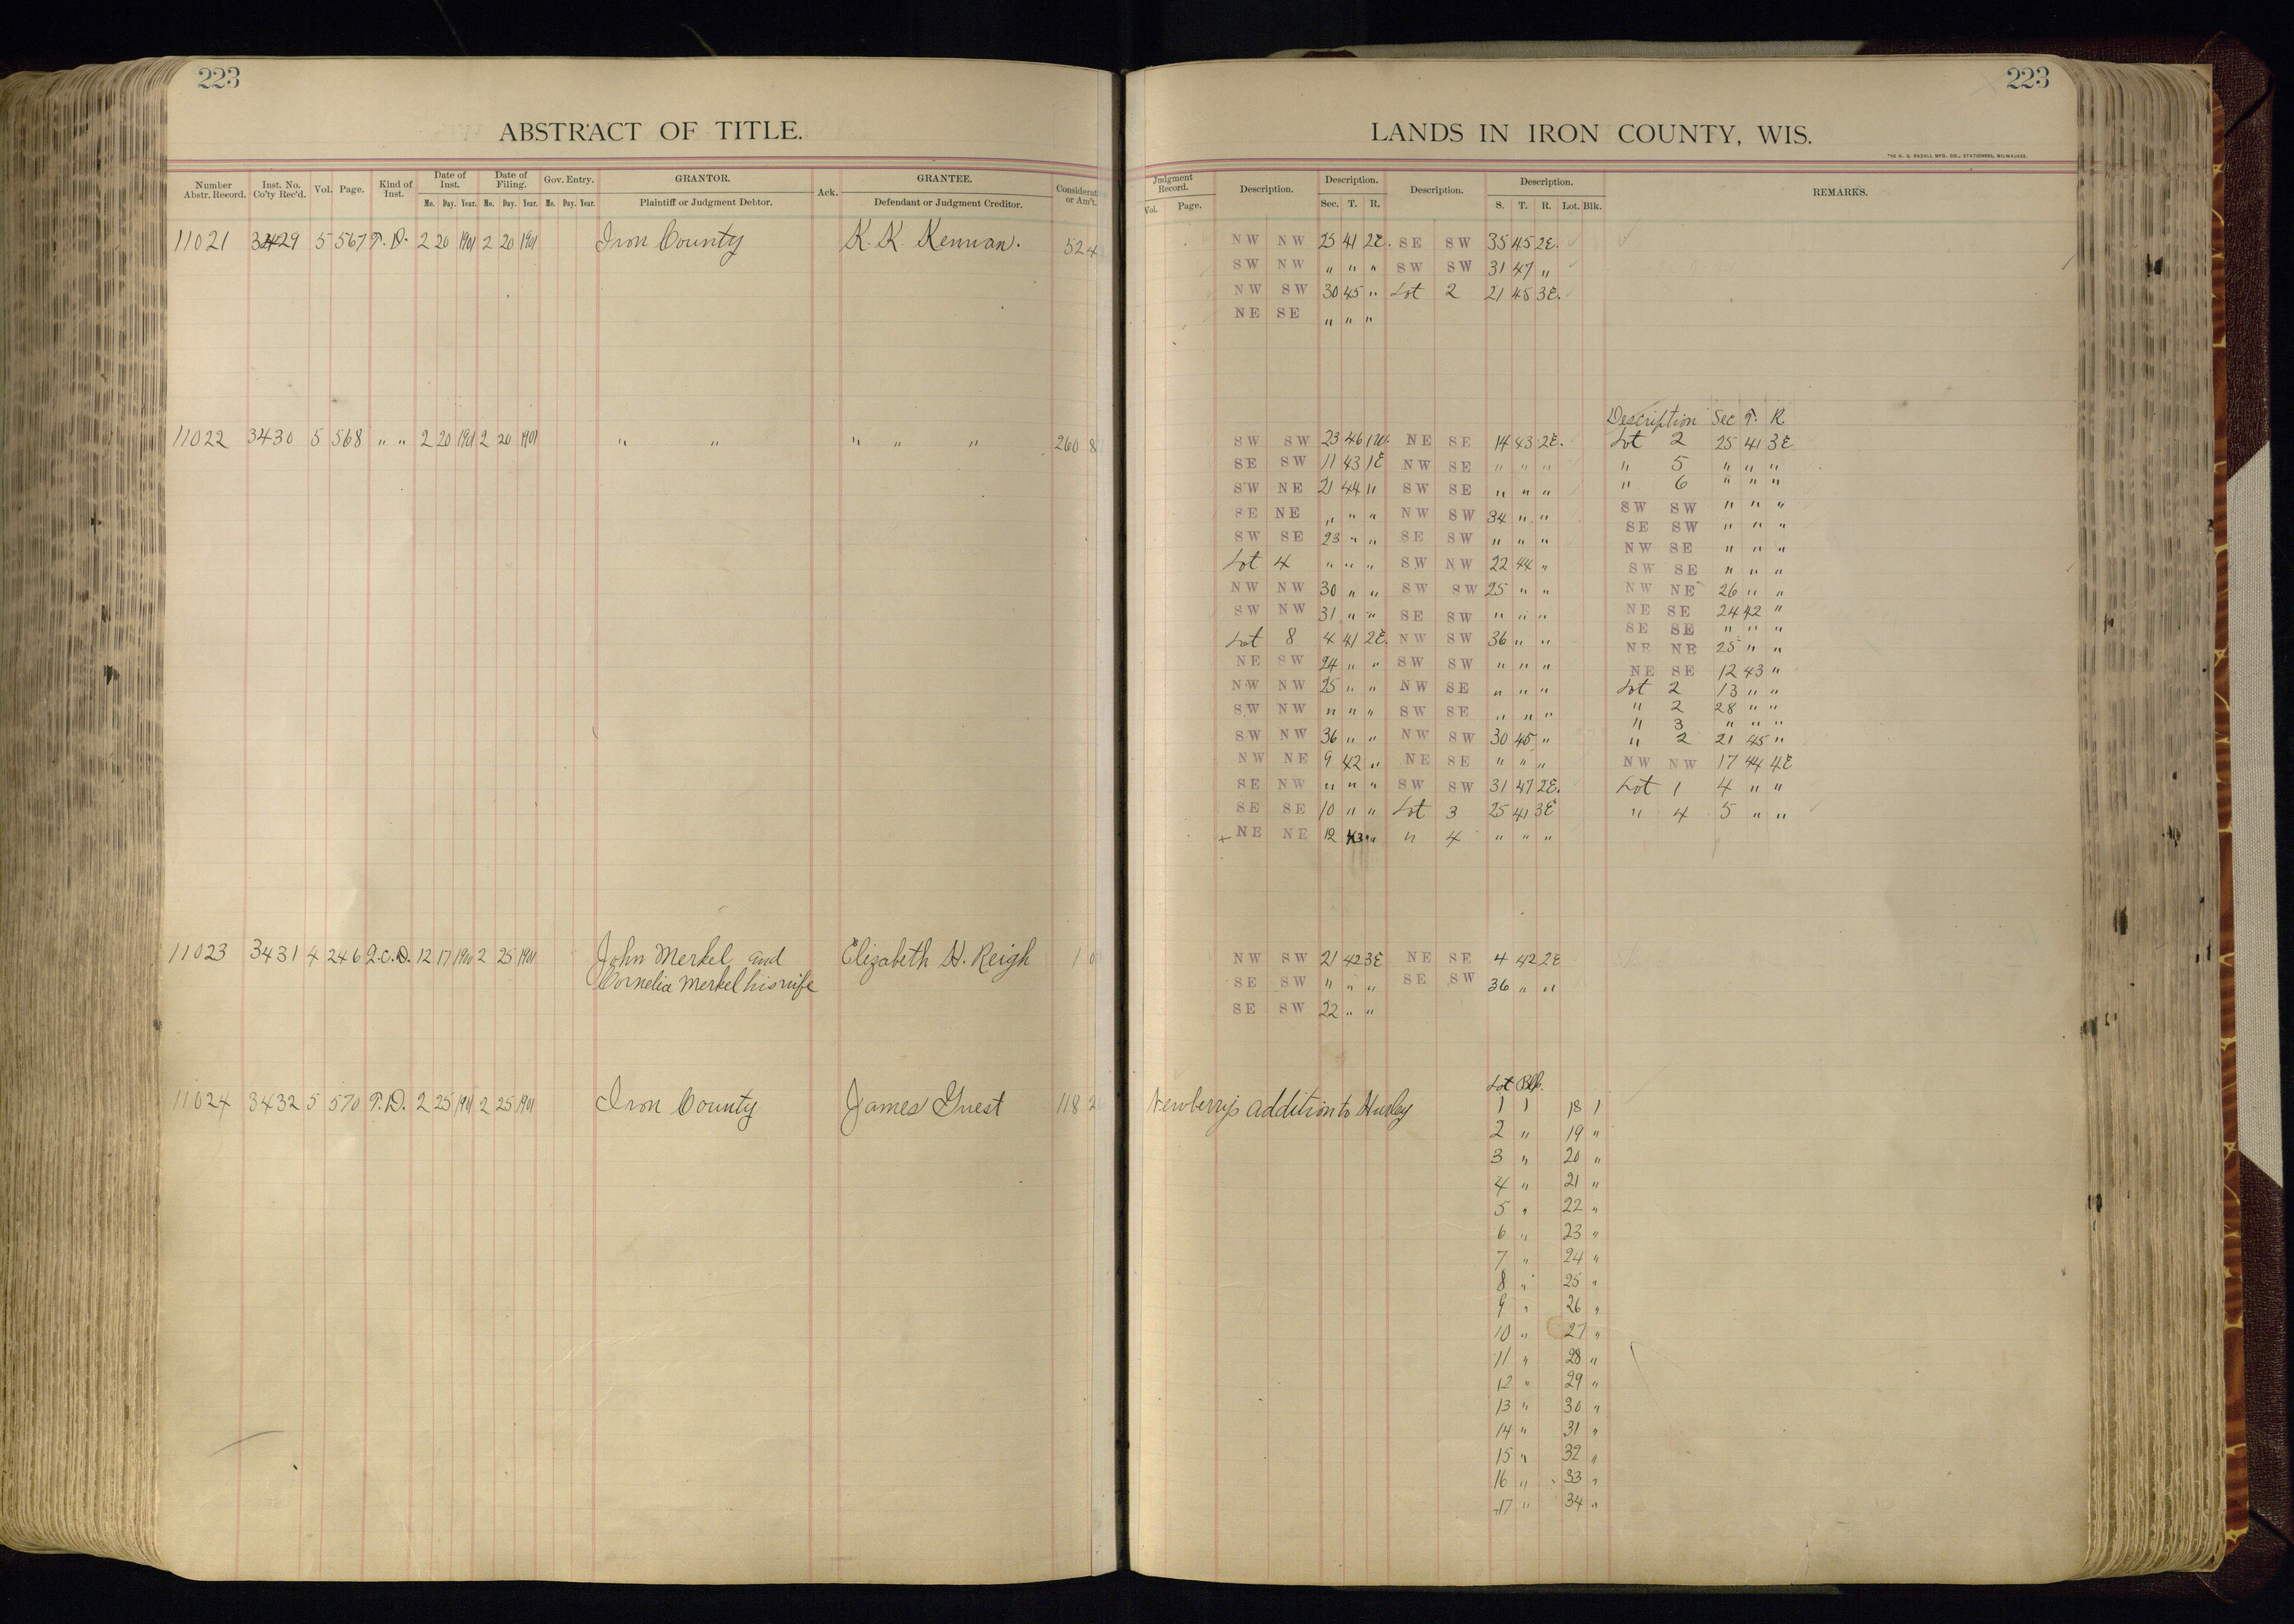 223
ABSTRACT OF TITLE.
Number Abstr. Record. Inst. No. Co'ty Rec'd. Vol. Page. Kind of Inst. Date of Inst. Mo. Day. Year. Date of Filing. Mo. Day. Year. Gov. Entry. Mo. Day. Year. GRANTOR. Plaintiff or Judgment Debtor. Ack. GRANTEE. Defendant or Judgment Creditor. or Am't.
11021 3429 5 567 T. D. 2 20 1901 2 20 1901 Iron County K. K. Kennan. 524
11022 3430 5 568 " " 2 20 1901 2 20 1901 " " " " " 260 8
11023 3431 4 246 Q.C.D. 12 17 1900 2 25 1901 John Merkel and Elizabeth H. Reigh 1 0
Cornelia Merkel his wife
11024 3432 5 570 T.D. 2 25 1901 2 25 1901 Iron County James Guest 118 2
223
LANDS IN IRON COUNTY, WIS.
THE H. G. RAZALL MFG. CO., STATIONERS, MILWAUKEE.
Judgment Record. Vol. Page. Description. Description. Sec. T. R. Description. Description. S. T. R. Lot. Blk. REMARKS.
NW NW 25 41 2E. SE SW 35 45 2E.
SW NW " " " SW SW 31 47 "
NW SW 30 45 " Lot 2 21 45 3E.
NE SE " " "
Description Sec T. R
SW SW 23 46 1W. NE SE 14 43 2E. Lot 2 25 41 3E
SE SW 11 43 1E NW SE " " " " 5 " " "
SW NE 21 44 " SW SE " " " " 6 " " "
SE NE " " " NW SW 34 " " SW SW " " "
SW SE 23 " " SE SW " " " SE SW " " "
Lot 4 " " " SW NW 22 44 " NW SE " " "
NW NW 30 " " SW SW 25 " " SW SE " " "
SW NW 31 " " SE SW " " " NW NE 26 " "
Lot 8 4 41 2E. NW SW 36 " " NE SE 24 42 "
NE SW 24 " " SW SW " " " SE SE " " "
NW NW 25 " " NW SE " " " NE NE 25 " "
SW NW " " " SW SE " " " NE SE 12 43 "
SW NW 36 " " NW SW 30 45 " Lot 2 13 " "
NW NE 9 42 " NE SE " " " " 2 28 " "
SE NW " " " SW SW 31 47 2E. " 3 " " "
SE SE 10 " " Lot 3 25 41 3E " 2 21 45 "
+ NE NE 12 43 " " 4 " " " NW NW 17 44 4E
Lot 1 4 " "
" 4 5 " "
NW SW 21 42 3E NE SE 4 42 2E
SE SW " " " SE SW 36 " "
SE SW 22 " "
Lot Blk.
Newberry's addition to Hurley 1 1 18 1
2 " 19 "
3 " 20 "
4 " 21 "
5 " 22 "
6 " 23 "
7 " 24 "
8 " 25 "
9 " 26 "
10 " 27 "
11 " 28 "
12 " 29 "
13 " 30 "
14 " 31 "
15 " 32 "
16 " 33 "
17 " 34 "